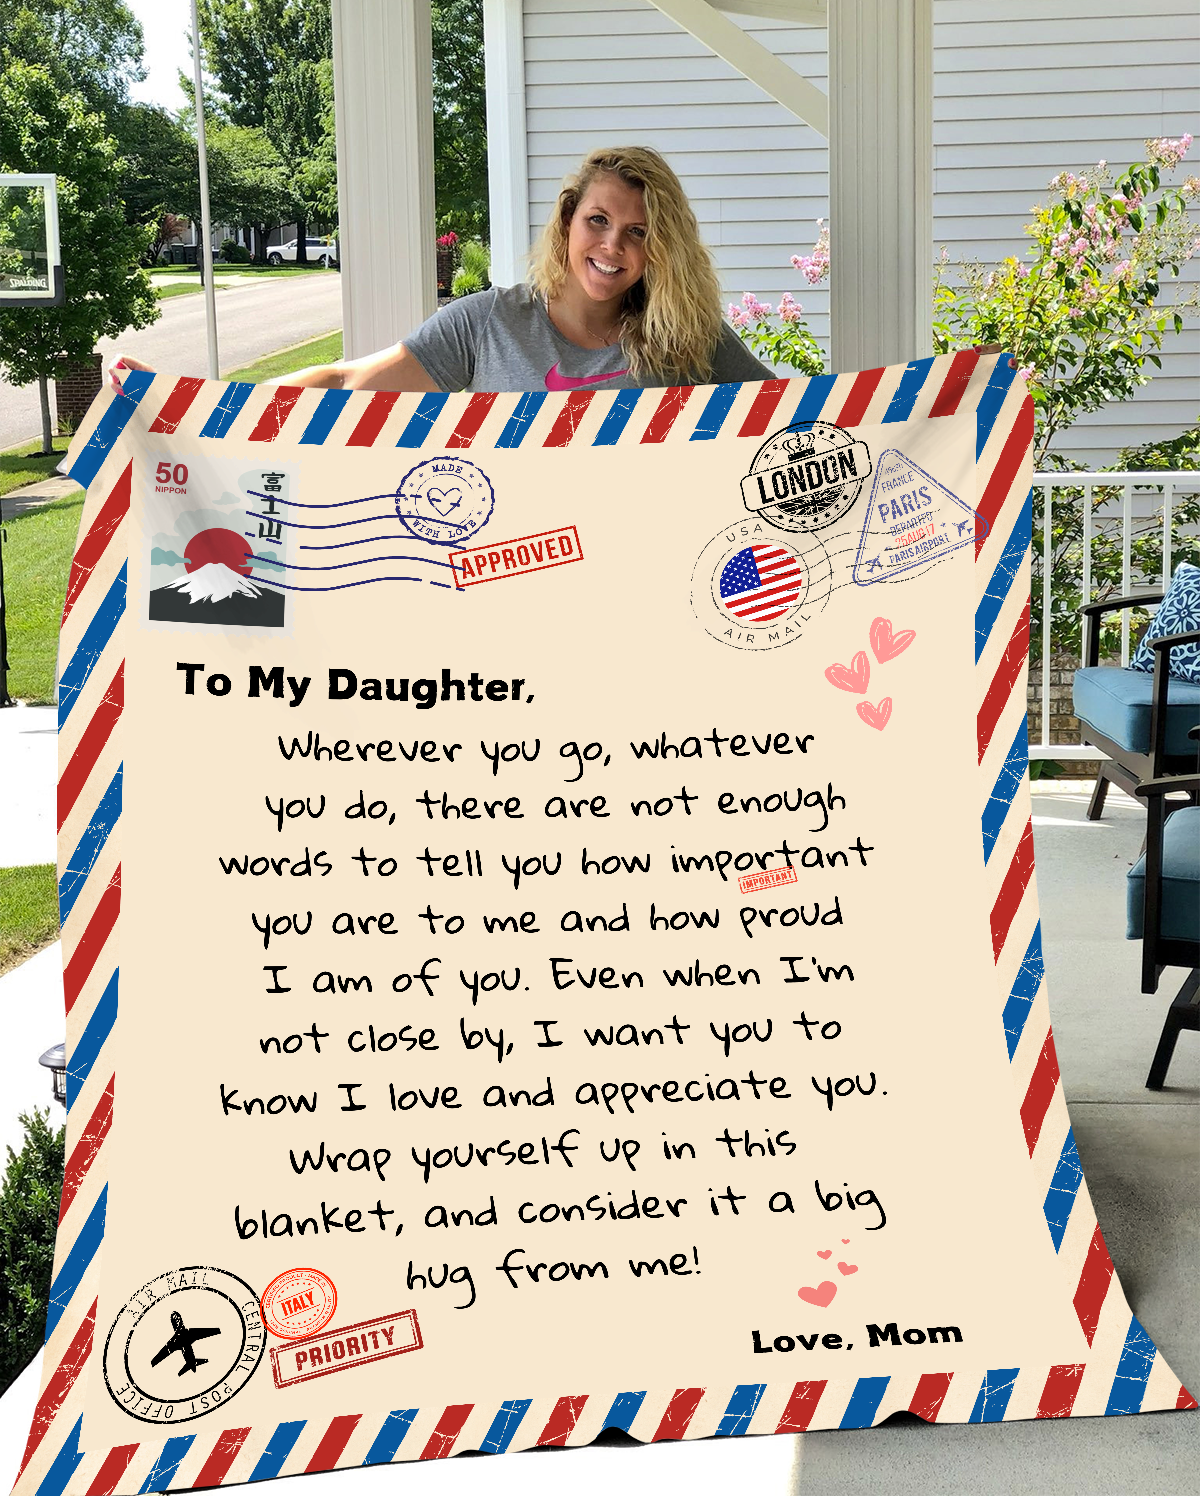 SPALDING
50
NIPPON
富士山
MADE
WITH LOVE
APPROVED
LONDON
FRANCE
PARIS
DEPARTED
25AUG17
PARIS AIRPORT
USA
AIR MAIL
To My Daughter,
Wherever you go, whatever
you do, there are not enough
words to tell you how important
IMPORTANT
you are to me and how proud
I am of you. Even when I'm
not close by, I want you to
know I love and appreciate you.
Wrap yourself up in this
blanket, and consider it a big
hug from me!
AIR MAIL
CENTRAL POST OFFICE
ITALY
PRIORITY
Love, Mom